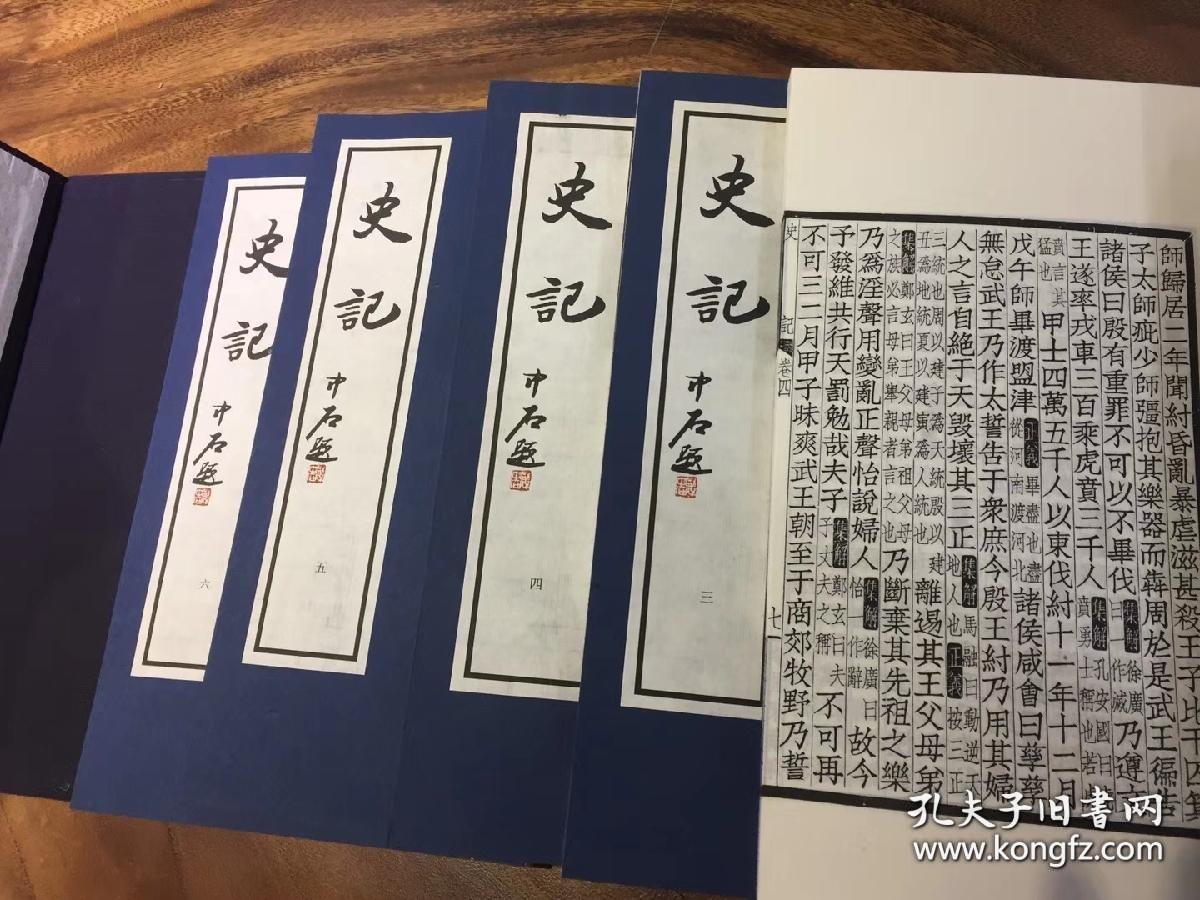 師歸居二年聞紂昏亂暴虐滋甚殺王子比干囚箕
子太師疵少師彊抱其樂器而犇周於是武王徧告
諸侯曰殷有重罪不可以不畢伐集解徐廣曰一作滅乃遵
王遂率戎車三百乘虎賁三千人集解孔安國曰賁勇士稱也若
賁言其猛也甲士四萬五千人以東伐紂十一年十二月
戊午師畢渡盟津正義畢盡也盡從河南渡河北諸侯咸會曰孳孳
無怠武王乃作太誓告于衆庶今殷王紂乃用其婦
人之言自絕于天毀壞其三正集解馬融曰動逆天地人也正義按三正
三統也周以建子爲天統殷以建丑爲地統夏以建寅爲人統也離逷其王父母弟
集解鄭玄曰王父母弟祖父母之族必言母弟舉親者言之也乃斷棄其先祖之樂
乃爲淫聲用變亂正聲怡說婦人集解徐廣曰怡一作辭故今
予發維共行天罰勉哉夫子集解鄭玄曰夫子丈夫之稱不可再
不可三二月甲子昧爽武王朝至于商郊牧野乃誓
史記 卷四 七一
史記
中石題
三
史記
中石題
四
史記
中石題
五
史記
中石題
六
孔夫子旧书网
www.kongfz.com